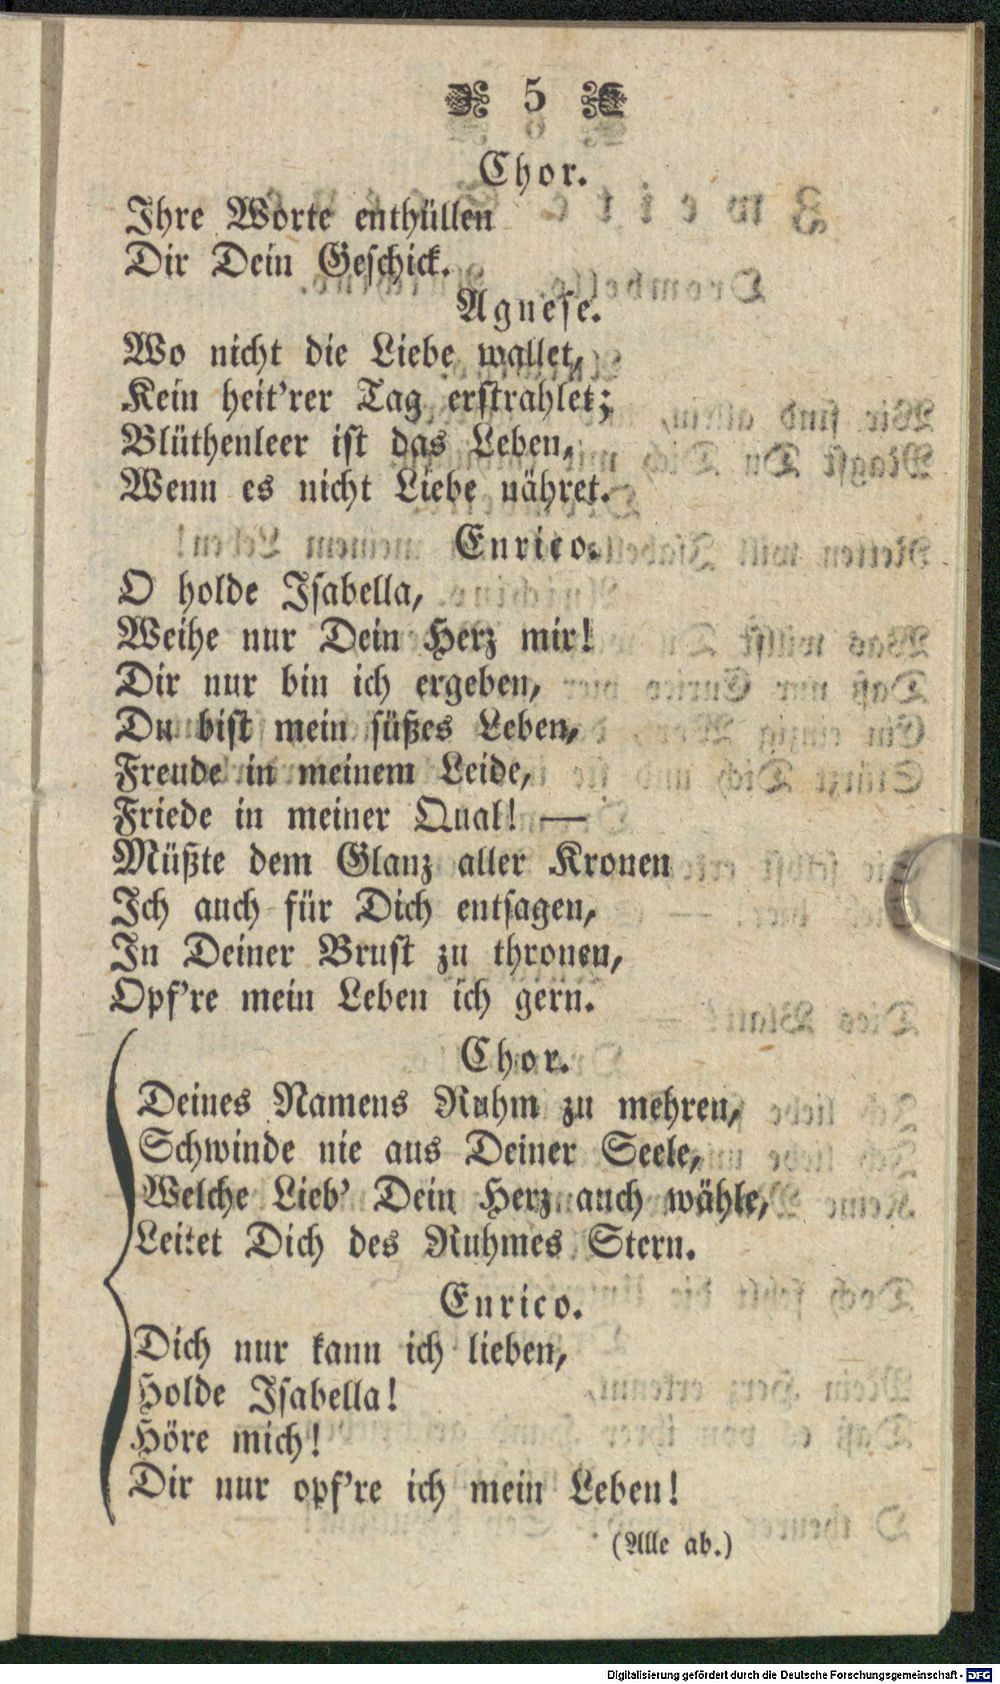 5
Chor.
Ihre Worte enthüllen
Dir Dein Geschick.
Agnese.
Wo nicht die Liebe wallet,
Kein heit'rer Tag erstrahlet;
Blüthenleer ist das Leben,
Wenn es nicht Liebe nähret.
Enrico.
O holde Isabella,
Weihe nur Dein Herz mir!
Dir nur bin ich ergeben,
Du bist mein süßes Leben,
Freude in meinem Leide,
Friede in meiner Qual! —
Müßte dem Glanz aller Kronen
Ich auch für Dich entsagen,
In Deiner Brust zu thronen,
Opf're mein Leben ich gern.
Chor.
Deines Namens Ruhm zu mehren,
Schwinde nie aus Deiner Seele,
Welche Lieb' Dein Herz auch wähle,
Leitet Dich des Ruhmes Stern.
Enrico.
Dich nur kann ich lieben,
Holde Isabella!
Höre mich!
Dir nur opf're ich mein Leben!
(Alle ab.)
Digitalisierung gefördert durch die Deutsche Forschungsgemeinschaft - DFG